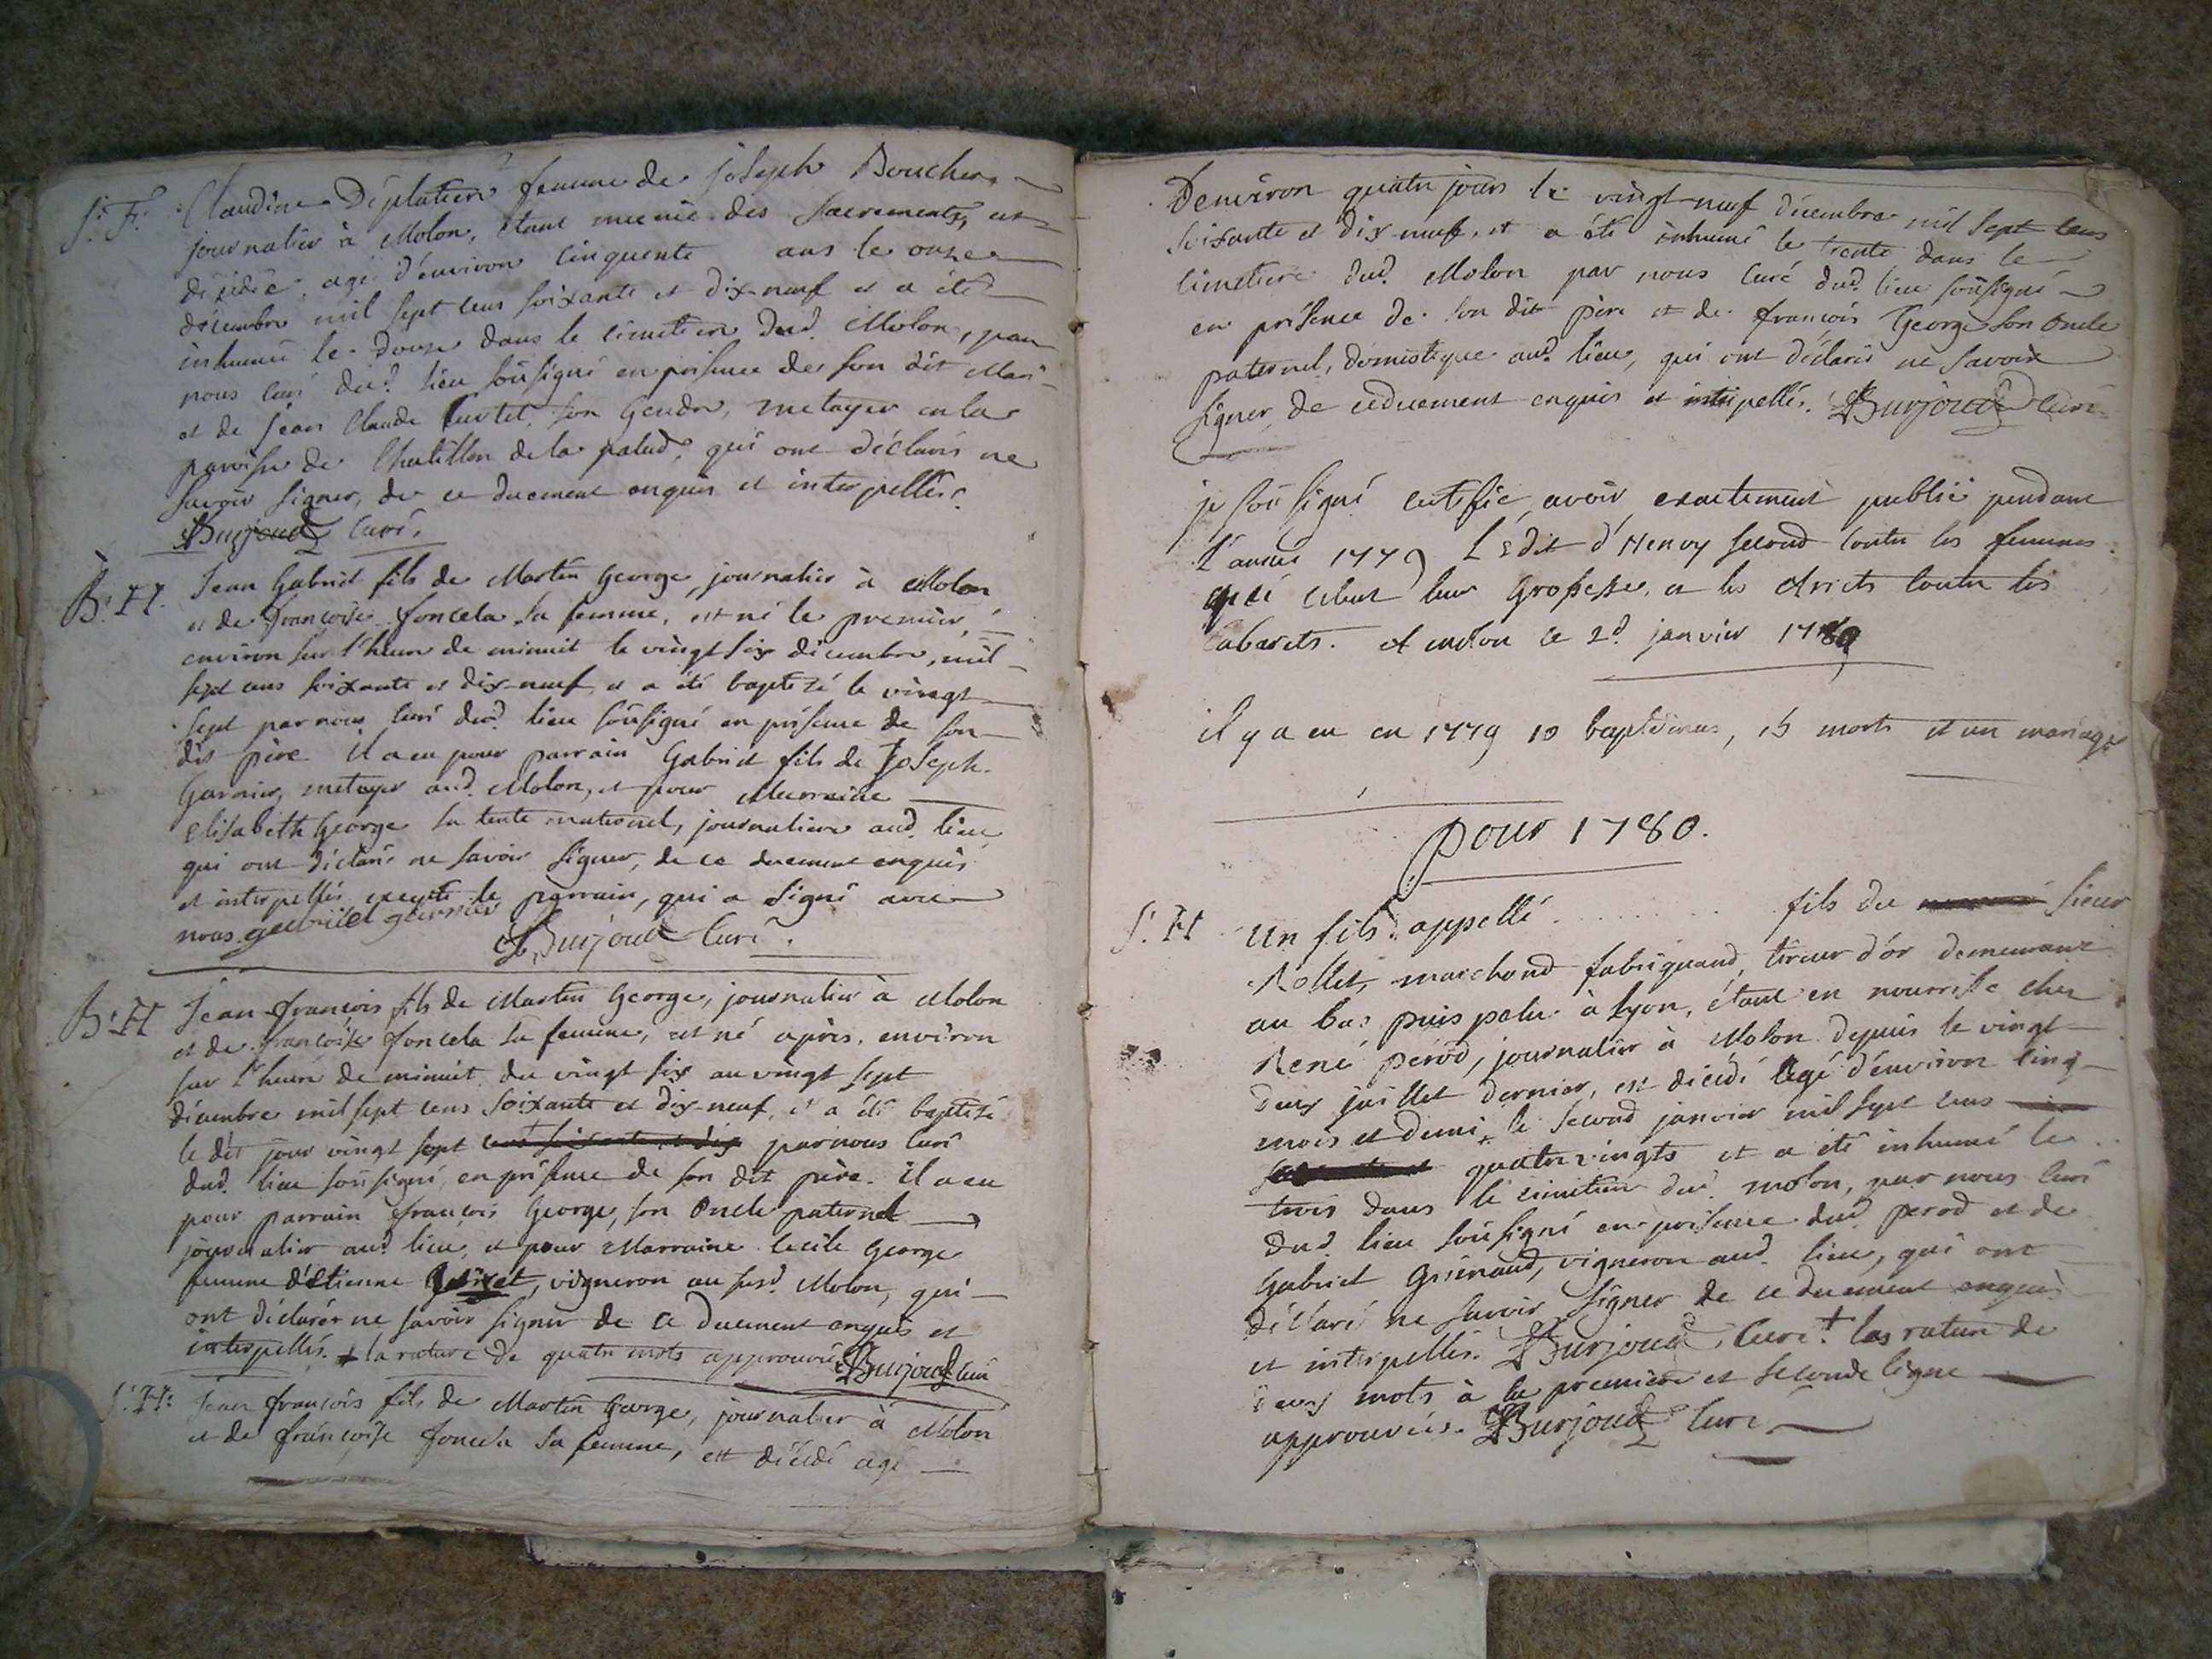 S. F. Claudine Déplatiere femme de joseph Boucher
journalier à Molon, étant munie des sacrements, est
décédée, agé d'environ cinquante ans le onze
décembre mil sept cens soixante et dix-neuf et a été
inhumée le douze dans le cimetiere dud. Molon, par
nous curé dud. lieu soûsigné en présence de son dit Mari
et de jean Claude Curtet, son Gendre, metayer en la
paroisse de Chatillon de la palud, qui ont déclarés ne
savoir signer, de ce duement enquis et interpellés.
Burjoud curé.
B. H. Jean Gabriel fils de Martin George, journalier à Molon
et de françoise foncela sa femme, est né le premier,
environ sur l'heure de minuit le vingt six décembre, mil
sept cens soixante et dix-neuf, et a été baptisé le vingt
sept par nous curé dud. lieu soûsigné en présence de son
dit père. il a eu pour parrain Gabriel fils de Joseph
Garnier, metayer aud. Molon, et pour Marraine
elisabeth George sa tente maternel, journaliere aud. lieu,
qui ont déclaré ne savoir signer, de ce duement enquis
et interpellés excepté le parrain, qui a signé avec
nous. gabriel garnier
Burjoud Curé.
B. H Jean-françois fils de Martin George, journalier à Molon
et de françoise foncela sa femme, est né après, environ
sur l'heure de minuit du vingt six au vingt sept
décembre mil sept cens soixante et dix-neuf, et a été baptisé
le dit jour vingt sept cens soixante et dix par nous curé
dud. lieu soûsigné, en présence de son dit père. il a eu
pour parrain françois George, son Oncle paternel
journalier aud. lieu, et pour Marraine Cecile George
femme d'étienne, vigneron au susd. Molon, qui
ont déclarés ne savoir signer de ce duement enquis et
interpellés. + la rature de quatre mots approuvée Burjoud curé
S. H. Jean françois fils de Martin George, journalier à Molon
et de françoise foncela sa femme, est décédé agé
D'environ quatre jours le vingt-neuf décembre mil sept cens
soixante et dix-neuf, et a été inhumé le trente dans le
cimetiere dud. Molon par nous Curé dud. lieu soûsigné
en présence de son dit père et de françois George son Oncle
paternel, domestique aud. lieu, qui ont déclarés ne savoir
signer de ce duement enquis et interpellés. Burjoud Curé
je soûsigné certifie avoir exactement publié pendant
l'année 1779 L'Edit d'Henry second contre les femmes
qui celent leur Grossesse, et les Arrets contre les
Cabarets. A molon ce 2d janvier 1780
il y a eu en 1779 10 baptêmes, 15 morts et un mariage
pour 1780.
S. H Un fils appellé . . . . . . . . fils du sieur
Rollet, marchand fabriquand, tireur d'or demeurant
au bas puispelu à Lyon, étant en nourrisse chez
René pérod, journalier à Molon depuis le vingt
deux juillet dernier, est décédé agé d'environ cinq
mois et demi, le second janvier mil sept cens
quatre vingts et a été inhumé le
trois dans le cimetiere dud. molon, par nous curé
dud. lieu soûsigné en présence dud. perod et de
Gabriel Guinand, vigneron aud. lieu, qui ont
déclaré ne savoir signer de ce duement enquis
et interpellés. Burjoud, Curé. + las rature de
deux mots à la premiere et seconde ligne
approuvées. Burjoud Curé